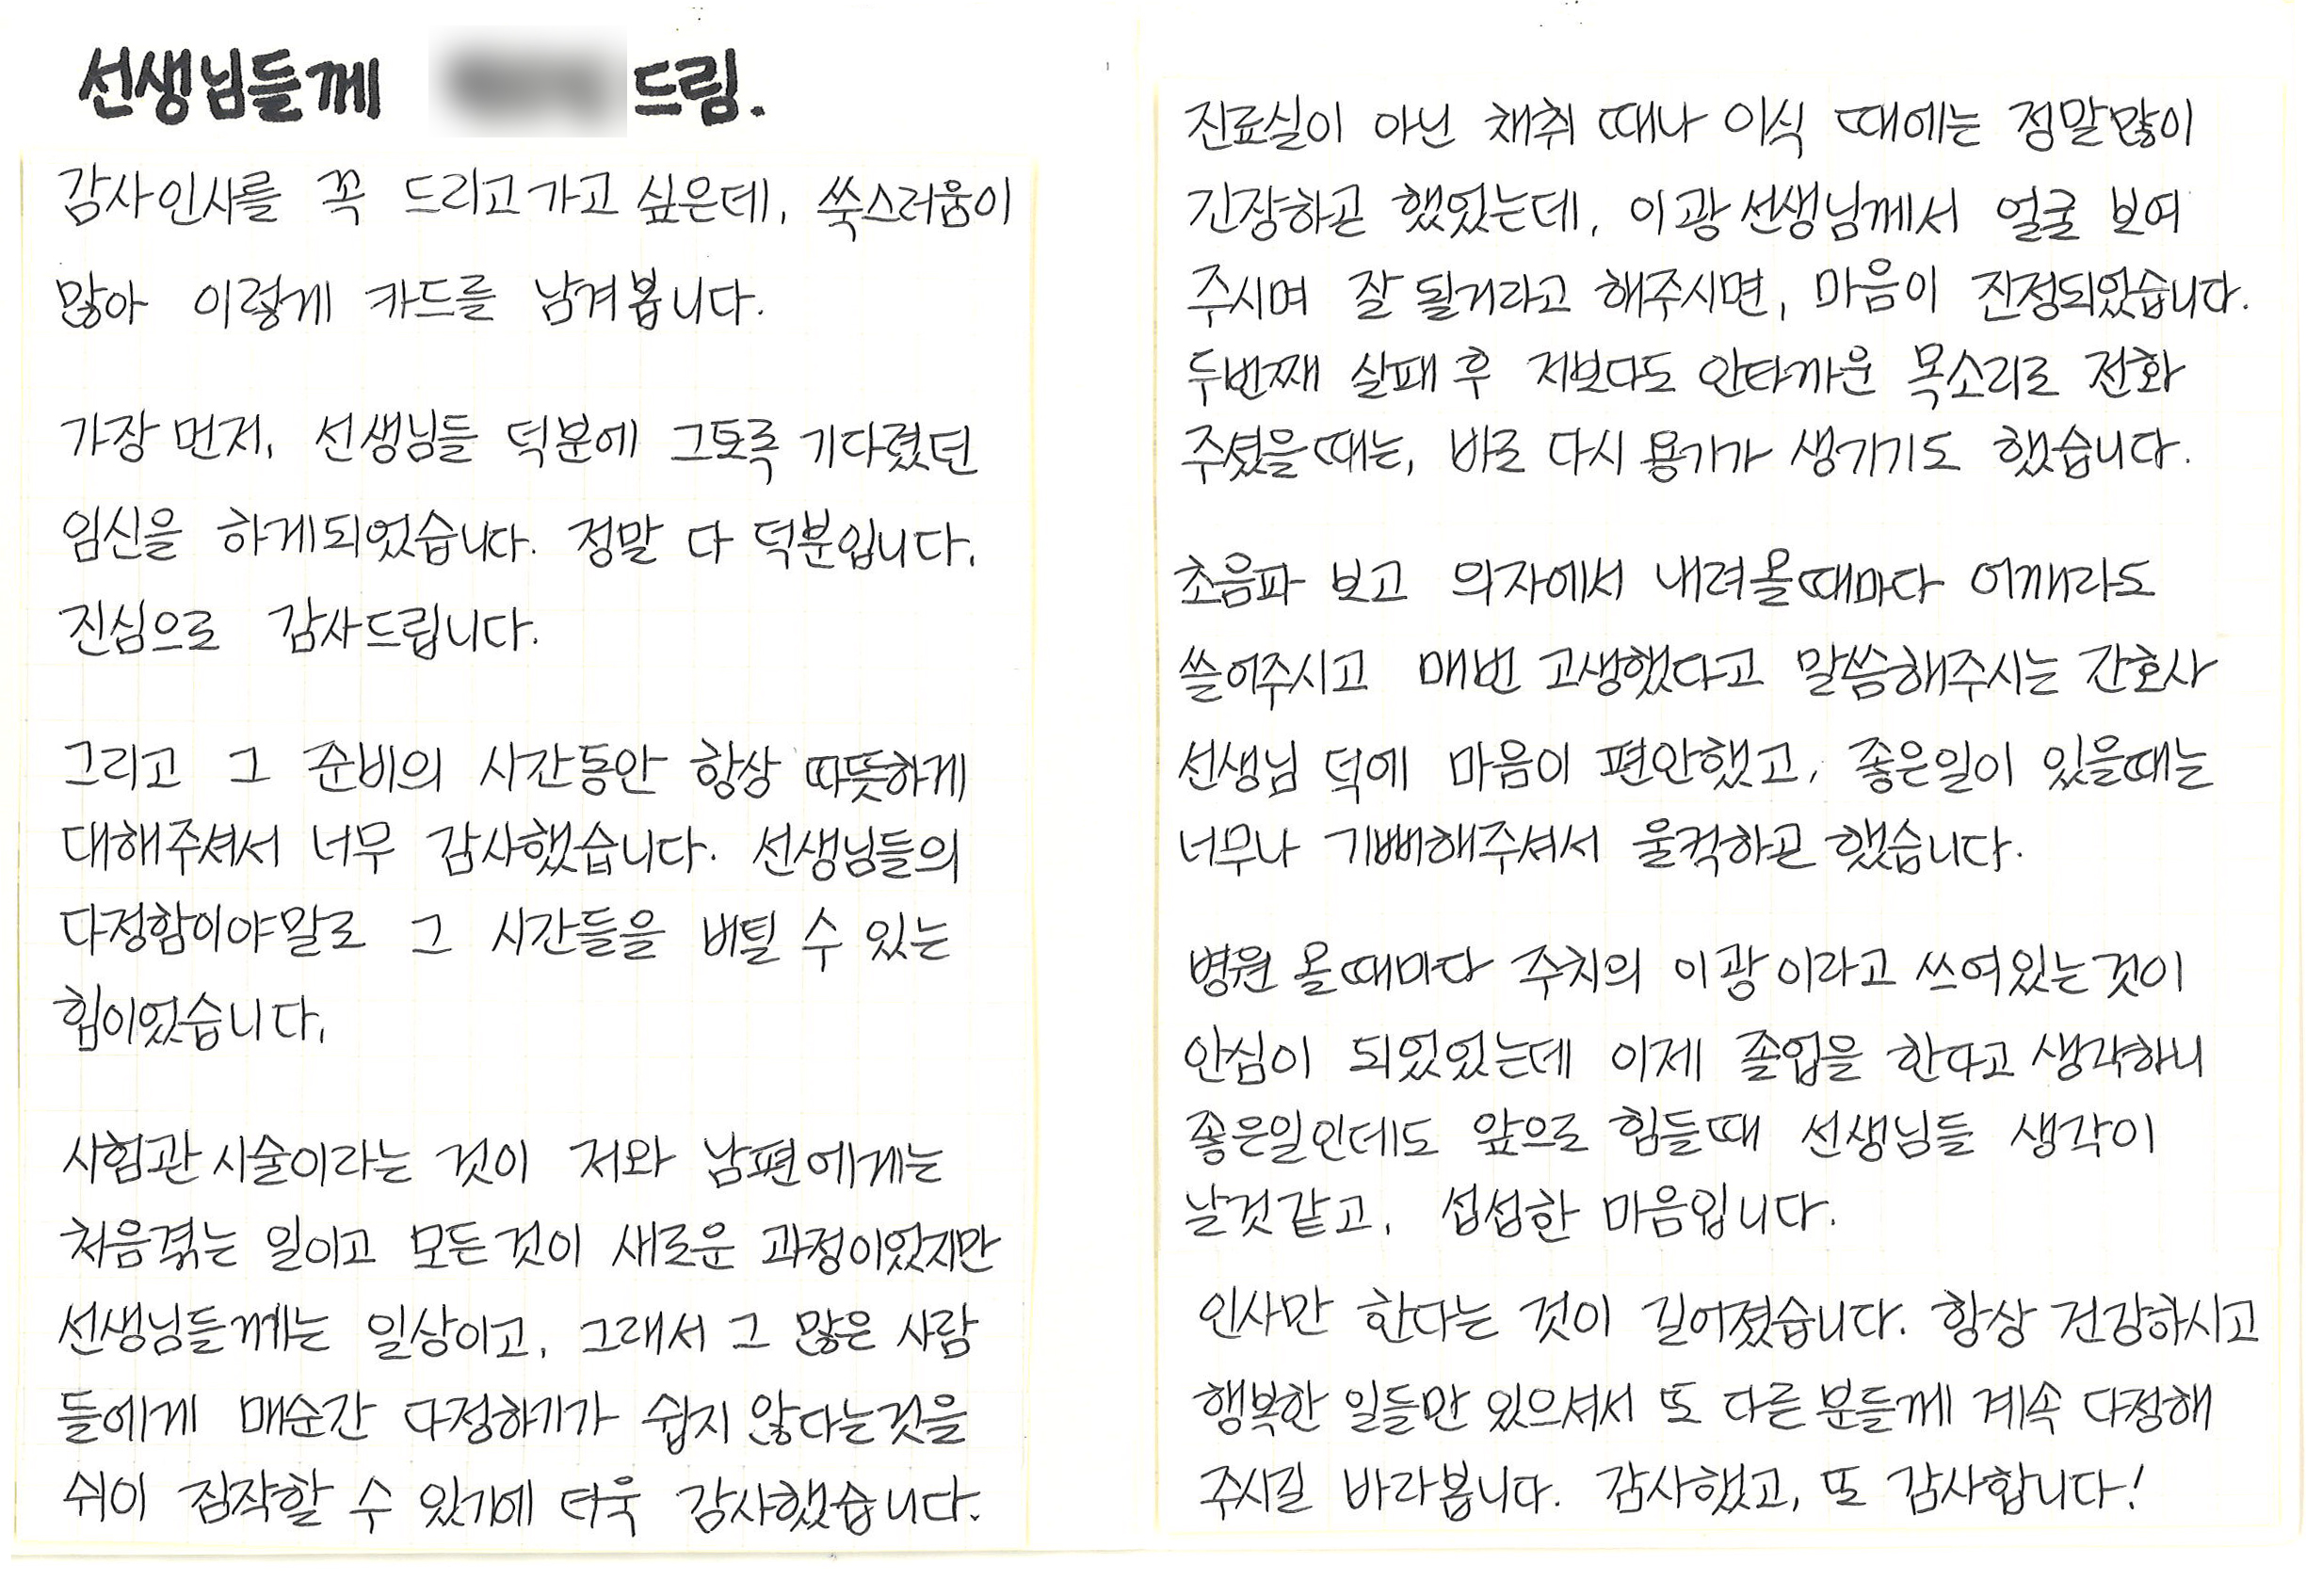 선생님들께 드림.
감사인사를 꼭 드리고가고 싶은데, 쑥스러움이
많아 이렇게 카드를 남겨봅니다.
가장 먼저, 선생님들 덕분에 그토록 기다렸던
임신을 하게되었습니다. 정말 다 덕분입니다.
진심으로 감사드립니다.
그리고 그 준비의 시간동안 항상 따뜻하게
대해주셔서 너무 감사했습니다. 선생님들의
다정함이야말로 그 시간들을 버틸 수 있는
힘이었습니다.
시험관 시술이라는 것이 저와 남편에게는
처음겪는 일이고 모든것이 새로운 과정이었지만
선생님들께는 일상이고, 그래서 그 많은 사람
들에게 매순간 다정하기가 쉽지 않다는것을
쉬이 짐작할 수 있기에 더욱 감사했습니다.
진료실이 아닌 채취 때나 이식 때에는 정말많이
긴장하곤 했었는데, 이광선생님께서 얼굴 보여
주시며 잘 될거라고 해주시면, 마음이 진정되었습니다.
두번째 실패 후 저보다도 안타까운 목소리로 전화
주셨을때는, 바로 다시 용기가 생기기도 했습니다.
초음파 보고 의자에서 내려올때마다 어깨라도
쓸어주시고 매번 고생했다고 말씀해주시는 간호사
선생님 덕에 마음이 편안했고, 좋은일이 있을때는
너무나 기뻐해주셔서 울컥하곤 했습니다.
병원 올때마다 주치의 이광이라고 쓰여있는것이
안심이 되었었는데 이제 졸업을 한다고 생각하니
좋은일인데도 앞으로 힘들때 선생님들 생각이
날것같고, 섭섭한 마음입니다.
인사만 한다는 것이 길어졌습니다. 항상 건강하시고
행복한 일들만 있으셔서 또 다른 분들께 계속 다정해
주시길 바라봅니다. 감사했고, 또 감사합니다!